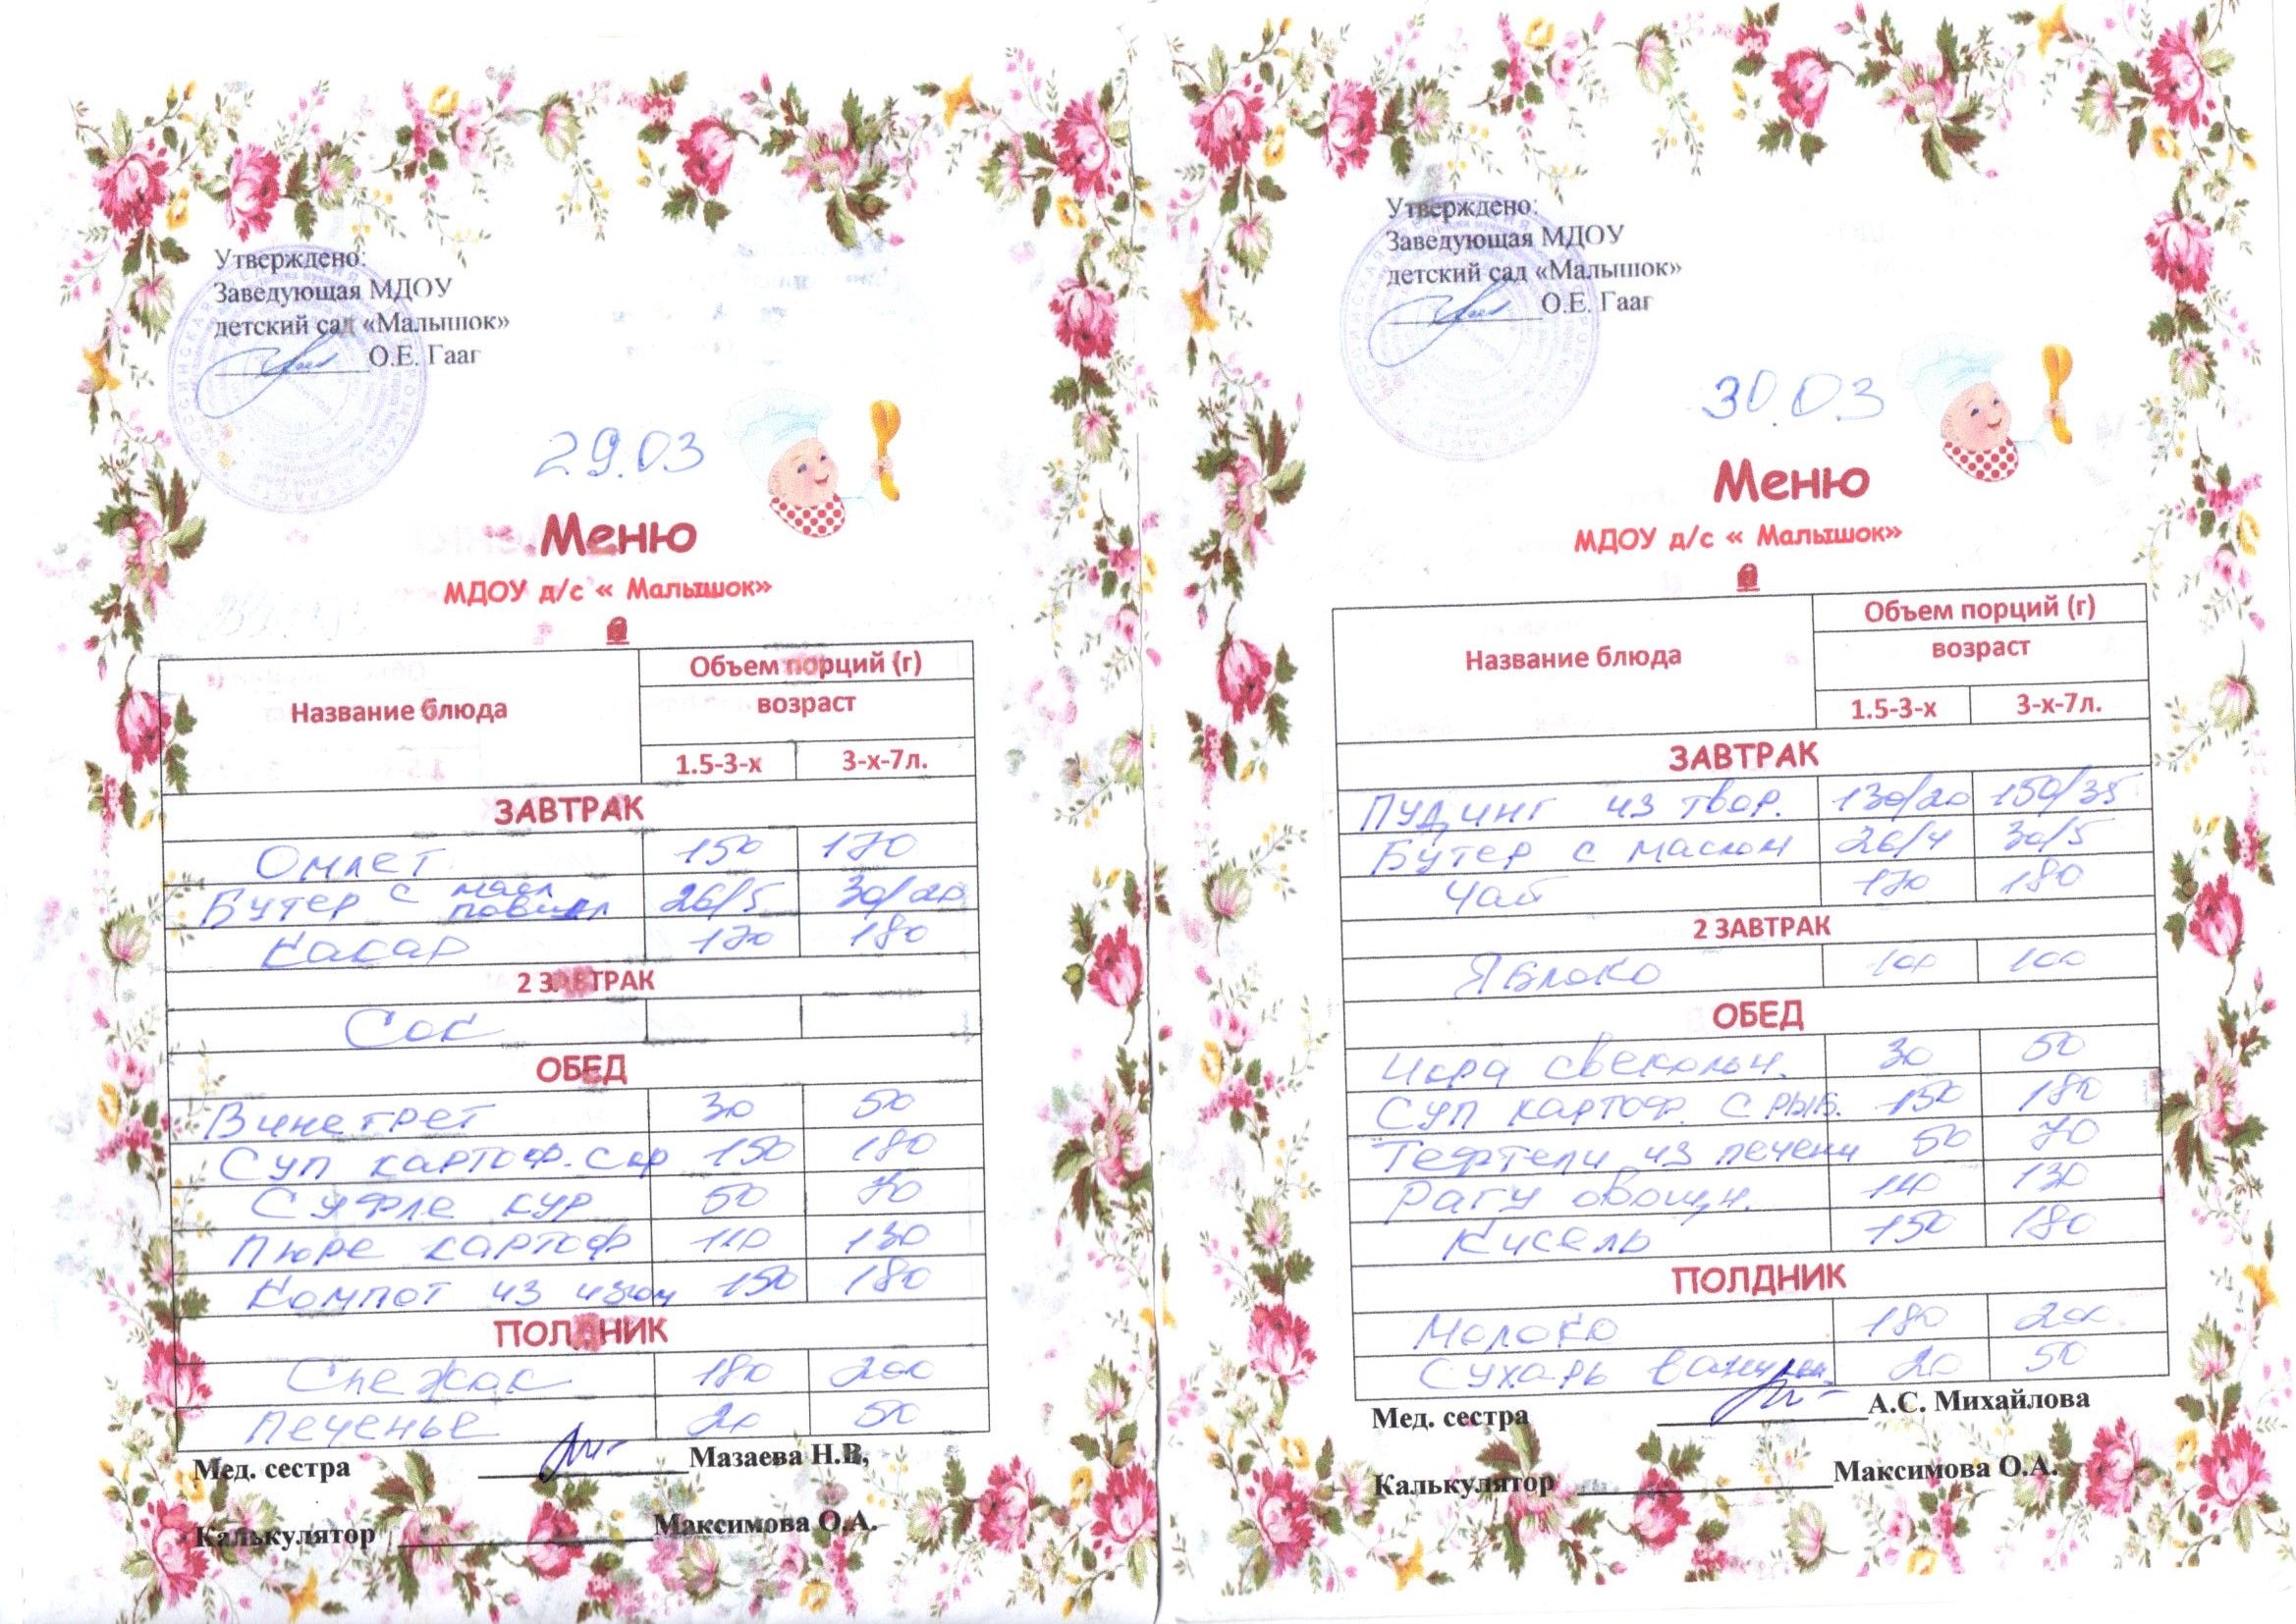 Утверждено:
Заведующая МДОУ
детский сад «Малышок»
О.Е. Гааг
29.03
Меню
МДОУ д/с « Малышок»
Название блюда
Объем порций (г)
возраст
1.5-3-х 3-х-7л.
ЗАВТРАК
Омлет 150 170
Бутер с масл повидл 26/5 30/20
Какао 170 180
2 ЗАВТРАК
Сок
ОБЕД
Винегрет 30 50
Суп картоф. 150 180
Суфле кур 50 70
Пюре картоф 110 130
Компот из изюм 150 180
ПОЛДНИК
Снежок 180 200
Печенье 20 50
Мед. сестра Мазаева Н.В,
Калькулятор Максимова О.А.
Утверждено:
Заведующая МДОУ
детский сад «Малышок»
О.Е. Гааг
30.03
Меню
МДОУ д/с « Малышок»
Название блюда
Объем порций (г)
возраст
1.5-3-х 3-х-7л.
ЗАВТРАК
Пудинг из твор. 130/20 150/35
Бутер с маслом 26/4 30/5
Чай 170 180
2 ЗАВТРАК
Яблоко 100 100
ОБЕД
Икра свекольн. 30 50
Суп картоф. с рыб. 150 180
Тефтели из печени 50 70
Рагу овощн. 110 130
Кисель 150 180
ПОЛДНИК
Молоко 180 200
Сухарь ванильн. 20 50
Мед. сестра А.С. Михайлова
Калькулятор Максимова О.А.